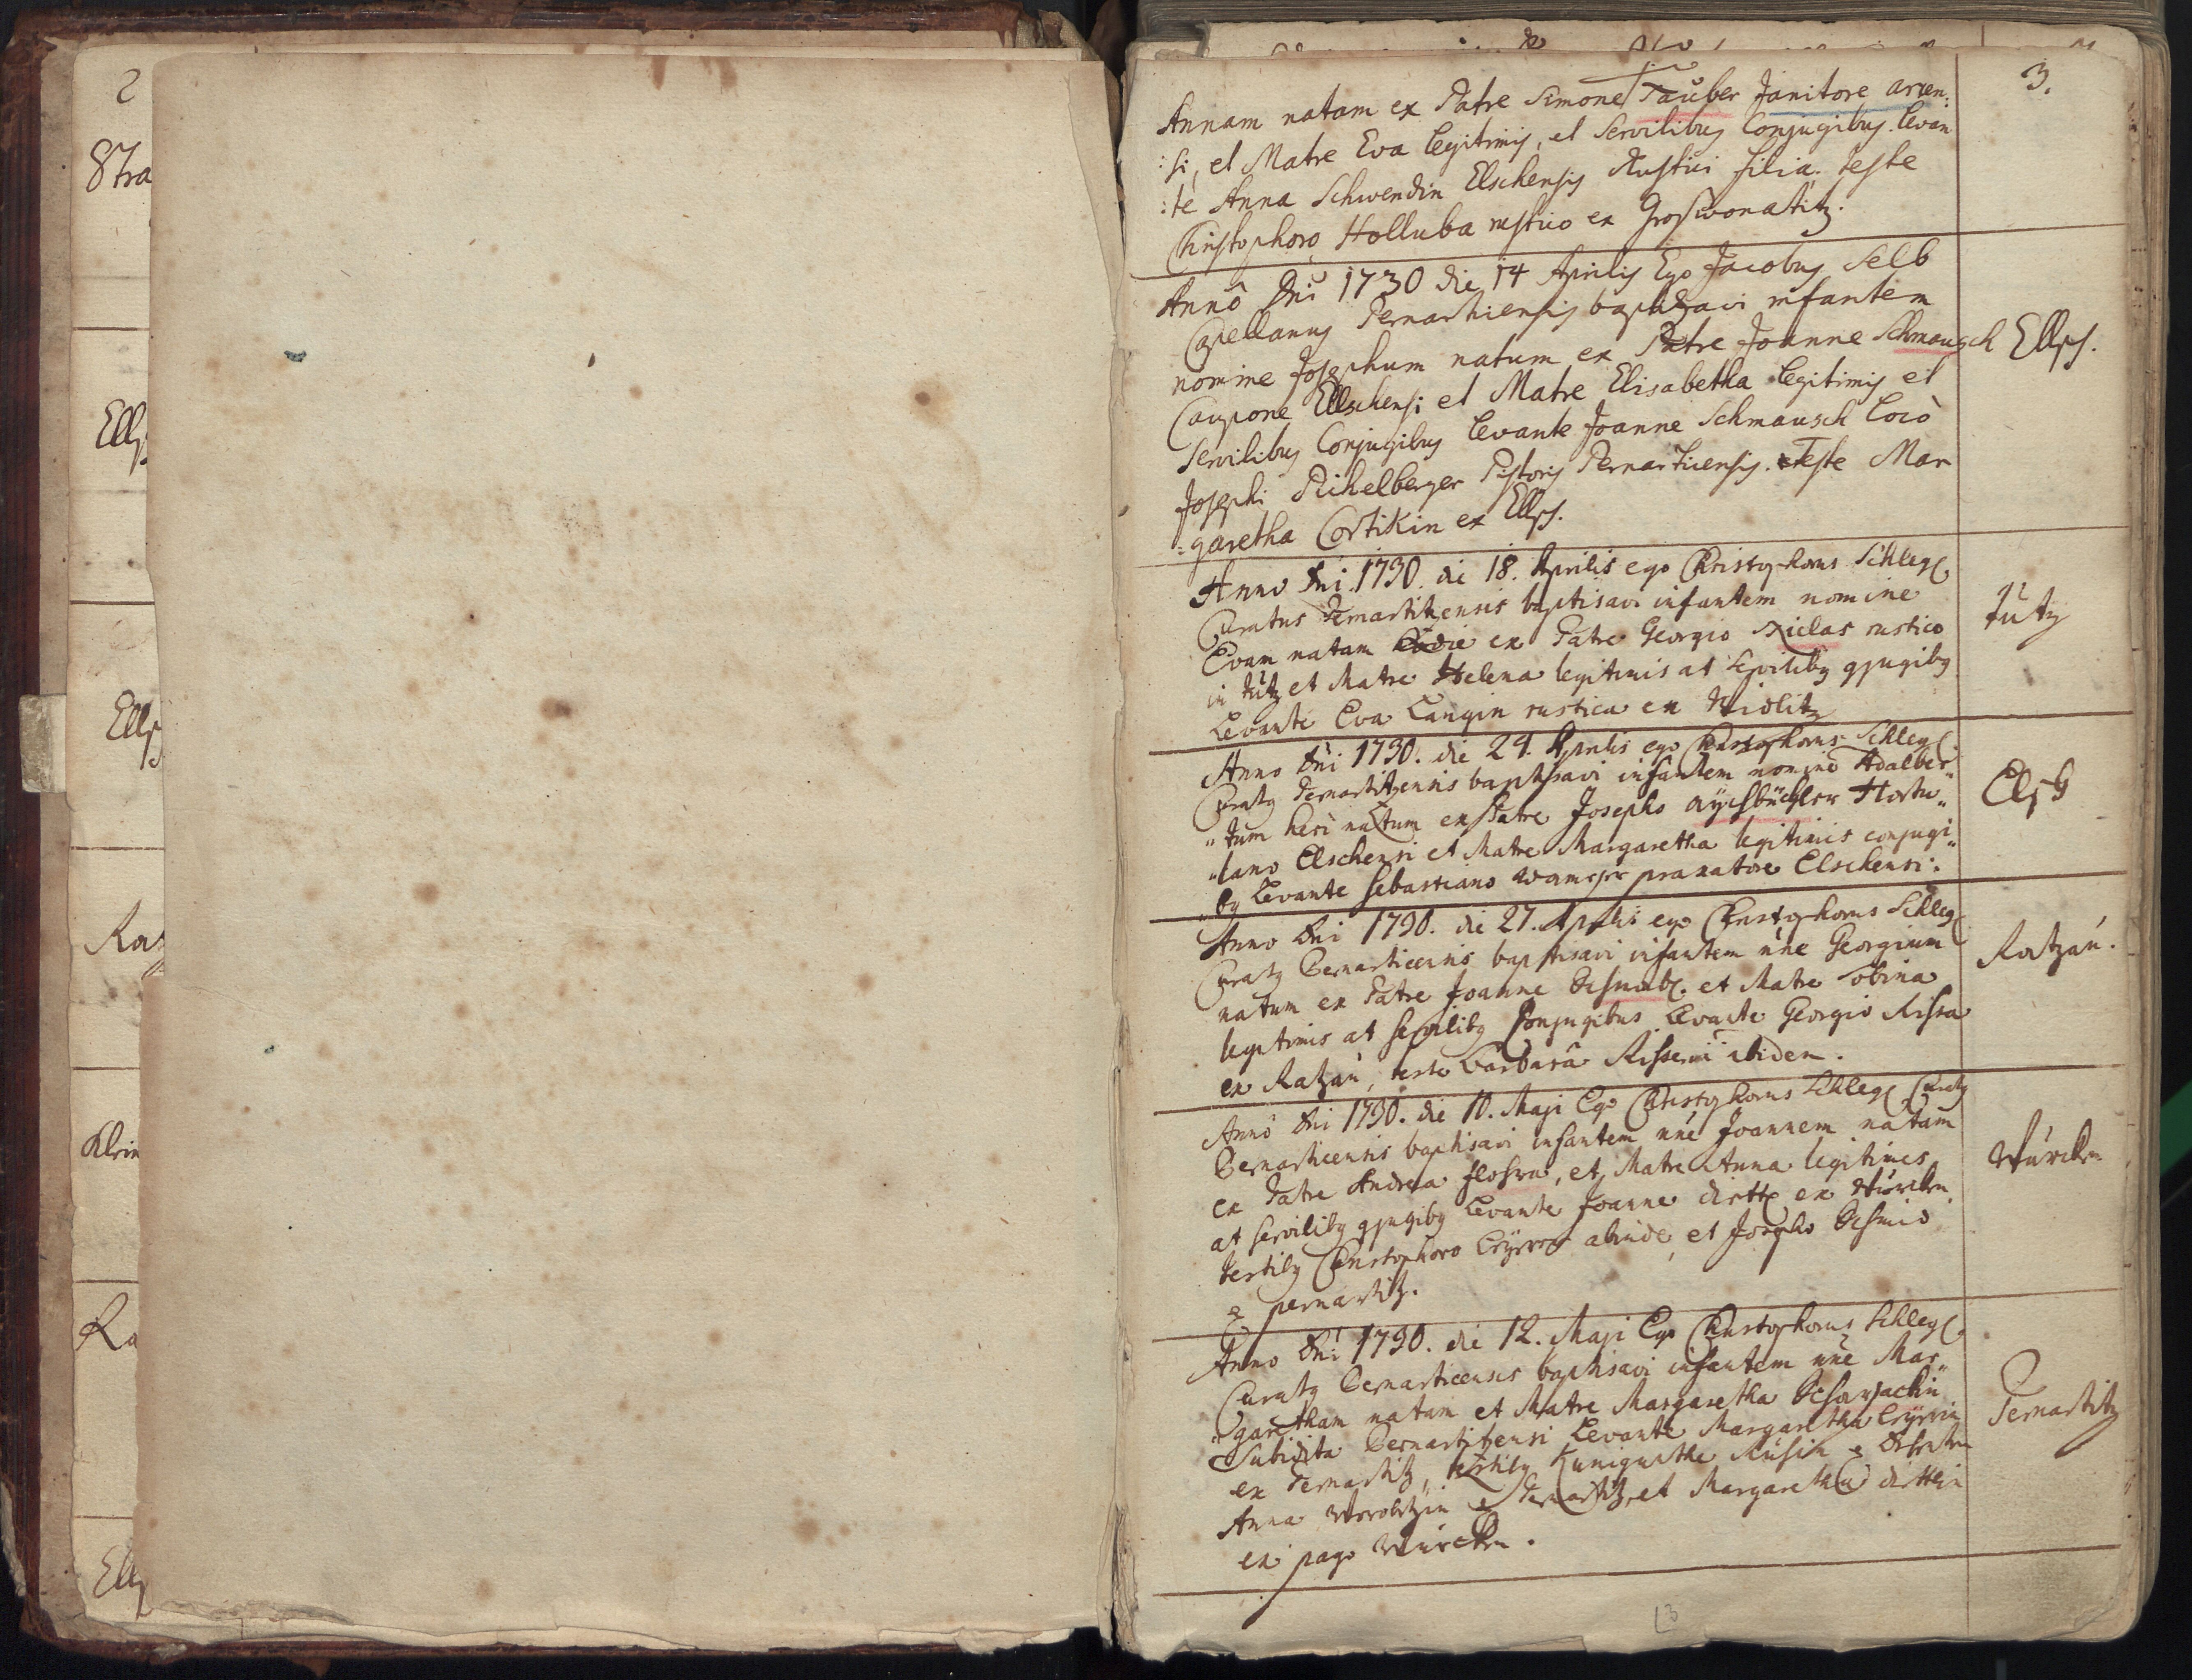 2
Stra
Ells
Ells
Ra
Klein
Ra
Ells
3.
Annam natam ex Patre Simone Tauber Janitore arcen:
:si, et Matre Eva legitimis, et Servilibus Conjugibus. Levan
:te Anna Schwendin Elschensis Rustici filia. teste
Christophoro Holluba rustico ex Groswonatitz.
Annô Dni 1730 die 14 Aprilis Ego Jacobus Selb
Capellanus Pernartiensis baptizavi infantem
nomine Josephum natum ex Patre Joanne Schmausch
Caupone Ellschensi et Matre Elisabetha legitimis et
Servilibus Conjugibus levante Joanne Schmausch Locò
Josephi Pichelberger Pistoris Pernarticensis. Teste Mar
=garetha Cortikin ex Ells.
Ells.
Anno Dni 1730. die 18. Aprilis ego Christophorus Schlegl
Curatus Pernartitzensis baptisavi infantem nomine
Evam natam hodie ex Patre Georgio Nielas rustico
in Tutz et Matre Helena legitimis at Servilibg gjugibg
Levante Eva Langin rustica ex Widlitz
Tutz
Anno Dni 1730. die 24. Aprilis ego Christophorus Schlegl
Curatg Pernartitzensis baptisavi infantem nomine Adalber„
„tum heri natum ex Patre Josepho Aÿchbüchler Hortu„
„lano Elschensi et Matre Margaretha legitimis conjugi„
„bg Levante Sebastiano praxatore Elschensi:
Elsch
Anno Dni 1730. die 27. Aprilis ego Christophorus Schlegl
Curatg Bernarticensis baptisavi infantem nne Georgium
natum ex Patre Joanne et Matre Sobina
legitimis at servilibg Conjugibus Levante Georgio Rissa
ex Ratzau, teste Barbara ibidem.
Ratzau.
Anno Dni 1730. die 10. Maji Ego Christophorus Schlegl Curatg
Bernarticensis baptisavi infantem nne Joannem natum
ex Patre Andrea, et Matre Anna legitimis
at servilibg gjugibg Levante Joanne ex
testibg Christophoro abinde, et Josepho Schmid
e pernartitz.
Anno Dni 1730. die 12. Maji Ego Christophorus Schlegl
Curatg Bernarticensis baptisavi infantem nne Mar„
„garetham natam et Matre Margaretha
Subdita Bernartitzensi Levante Margaretha
ex Pernartitz, testibg Kunigunda
Anna e Pernartitz, et Margaretha
ex pago
Pernartitz
13